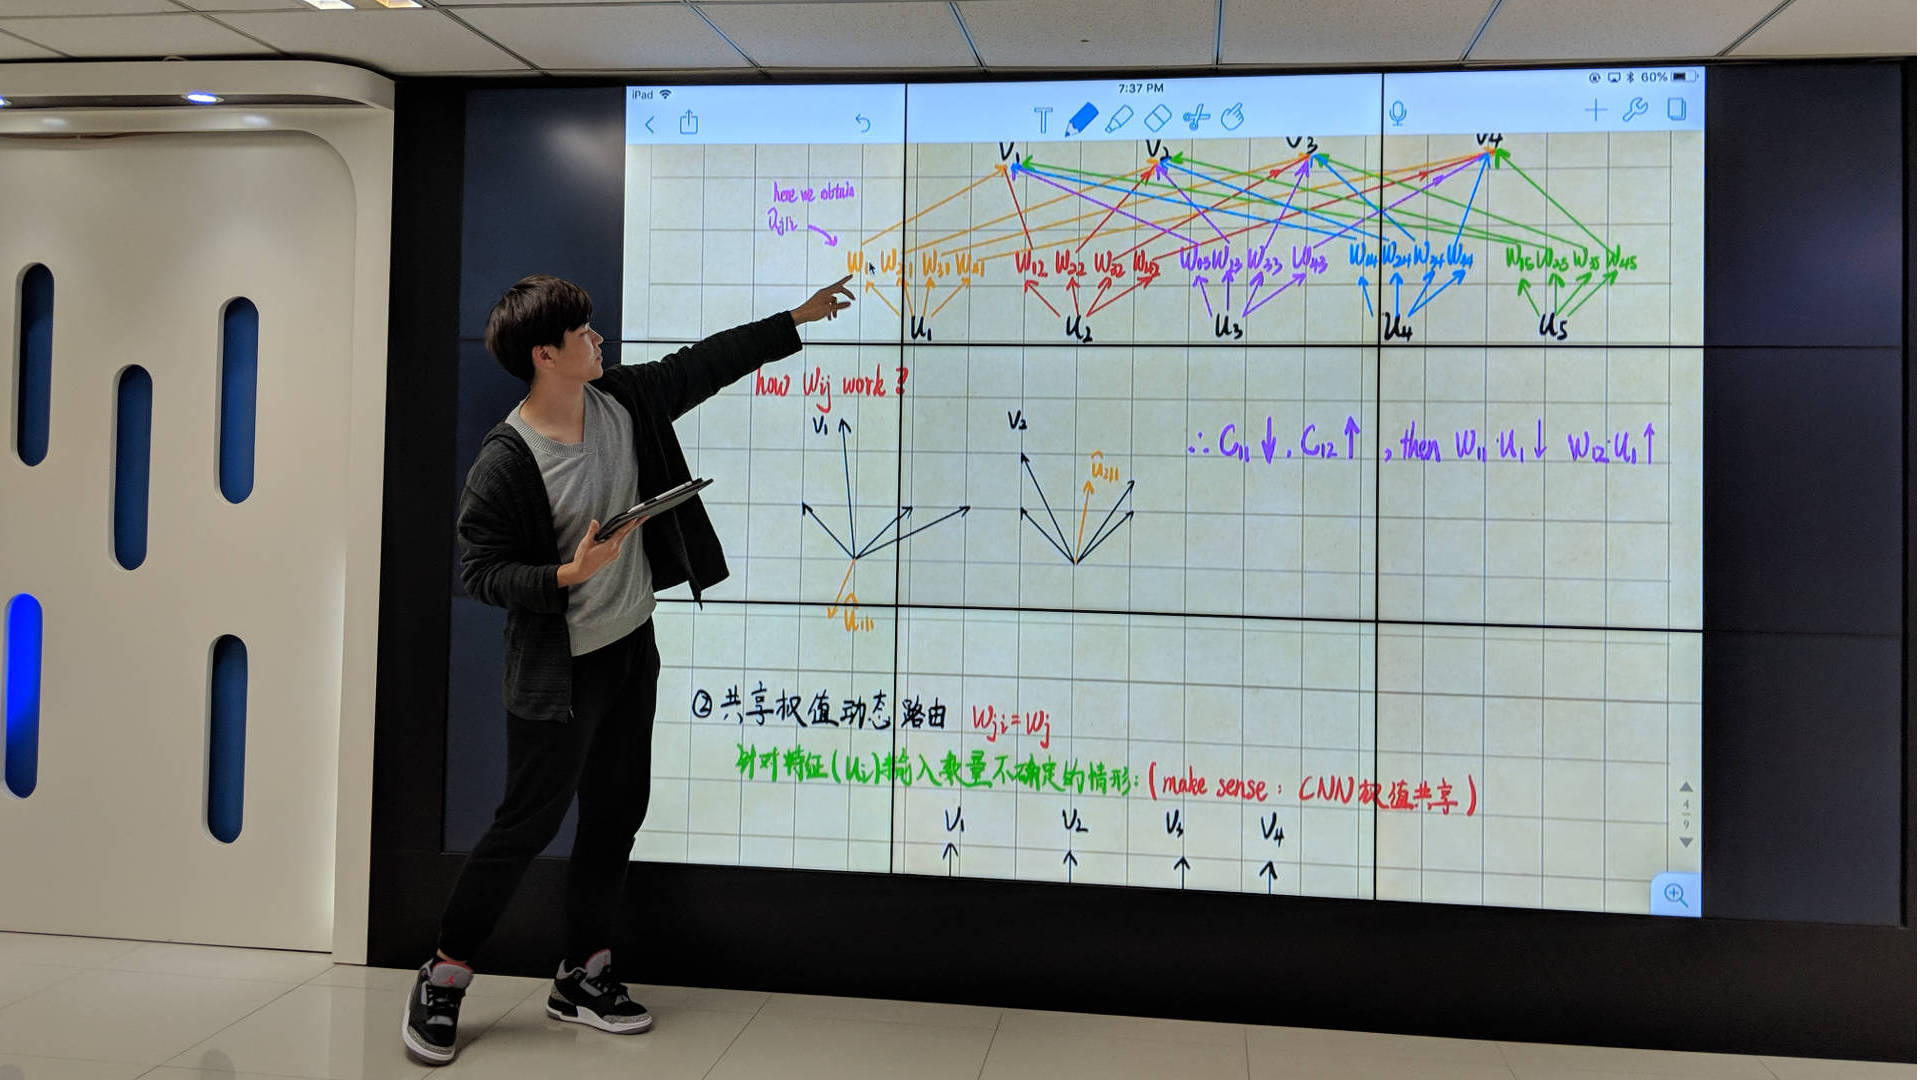 iPad 7:37 PM 60%
T
V₁ V₂ V₃ V₄
here we obtain
û_j|i
W₁₁ W₂₁ W₃₁ W₄₁ W₁₂ W₂₂ W₃₂ W₄₂ W₁₃ W₂₃ W₃₃ W₄₃ W₁₄ W₂₄ W₃₄ W₄₄ W₁₅ W₂₅ W₃₅ W₄₅
u₁ u₂ u₃ u₄ u₅
how Wij work ?
V₁ V₂
∴ C₁₁ ↓ , C₁₂ ↑ , then W₁₁·u₁ ↓ W₁₂·u₁ ↑
û₂|₁
û₁|₁
② 共享权值动态路由 Wji = Wj
针对特征(ui)输入数量不确定的情形: (make sense : CNN权值共享)
V₁ V₂ V₃ V₄
4
9